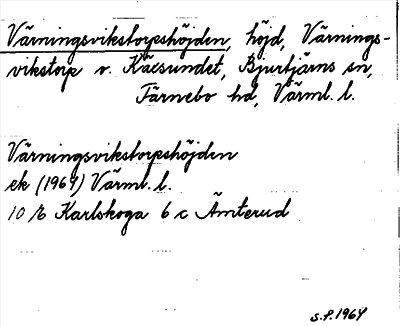 Värningsvikstorpshöjden, höjd, Värnings-
vikstorp v. Käcsundet, Bjurtjärns sn,
Färnebo hd, Värml. l.
Värningsvikstorpshöjden
ek (1964) Värml. l.
10 E Karlskoga 6 c Ämterud
S.P. 1964